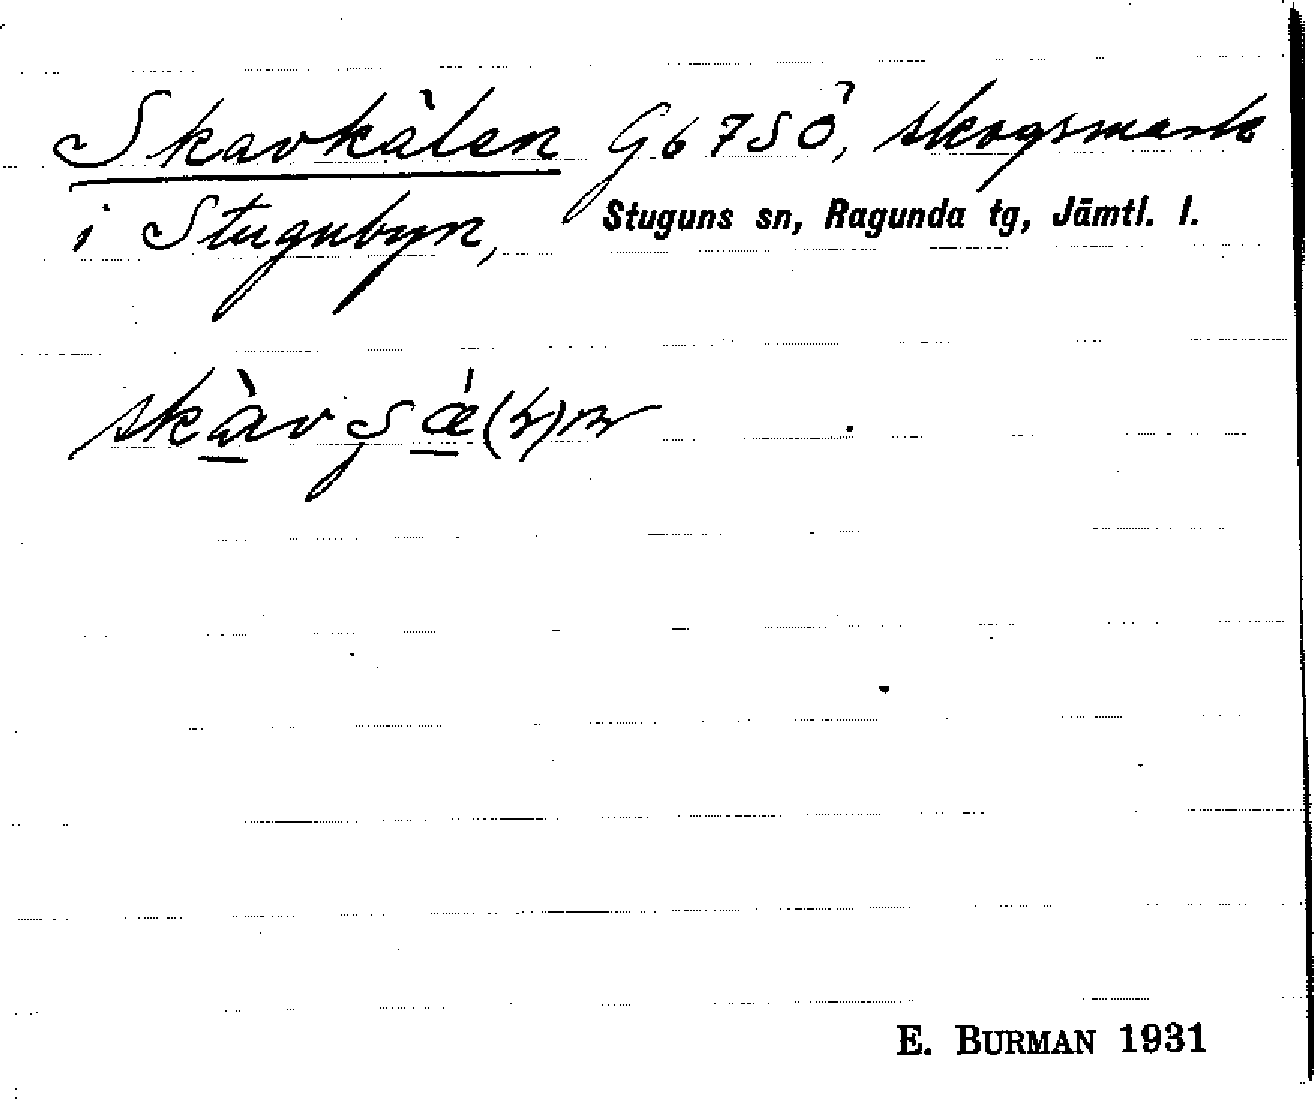 Skavkälen Gb 7 S Ö, skogsmark
i Stugubyn, Stuguns sn, Ragunda tg, Jämtl. l.
E. BURMAN 1931